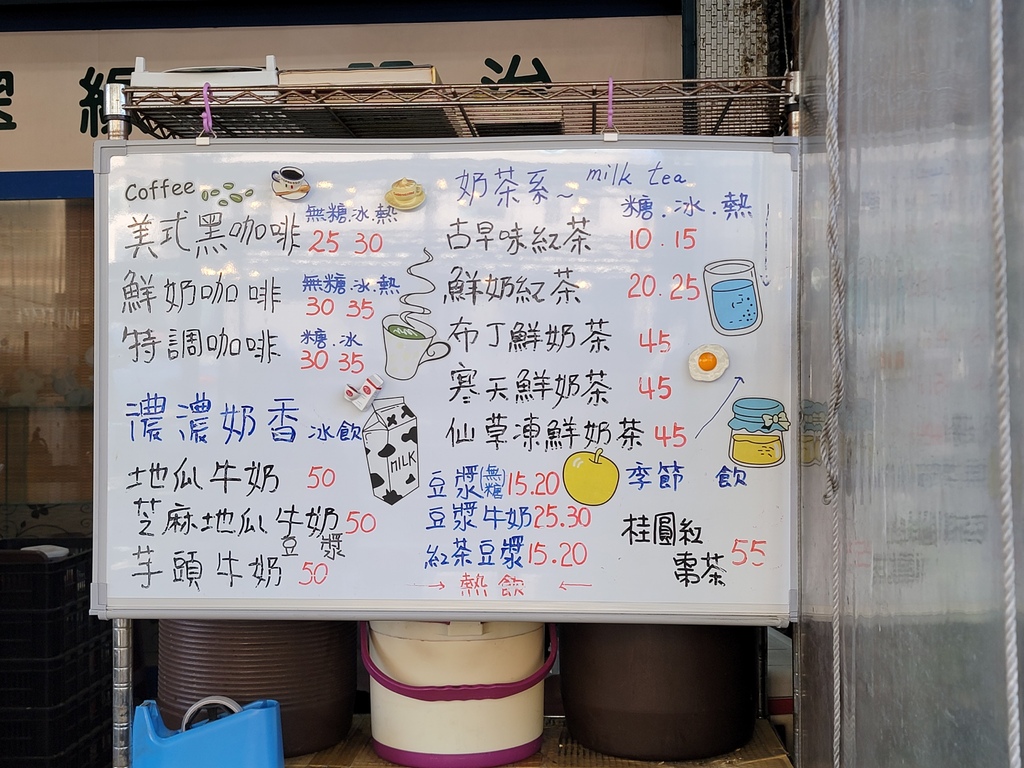 治
Coffee
無糖.冰.熱
美式黑咖啡 25 30
無糖.冰.熱
鮮奶咖啡 30 35
糖.冰
特調咖啡 30 35
濃濃奶香 冰飲
地瓜牛奶 50
芝麻地瓜牛奶 50
豆漿
芋頭牛奶 50
MILK
奶茶系~ milk tea
糖.冰.熱
古早味紅茶 10.15
鮮奶紅茶 20.25
布丁鮮奶茶 45
寒天鮮奶茶 45
仙草凍鮮奶茶 45
豆漿(無糖) 15.20
豆漿牛奶 25.30
紅茶豆漿 15.20
→ 熱飲 ←
季節 飲
桂圓紅
棗茶 55